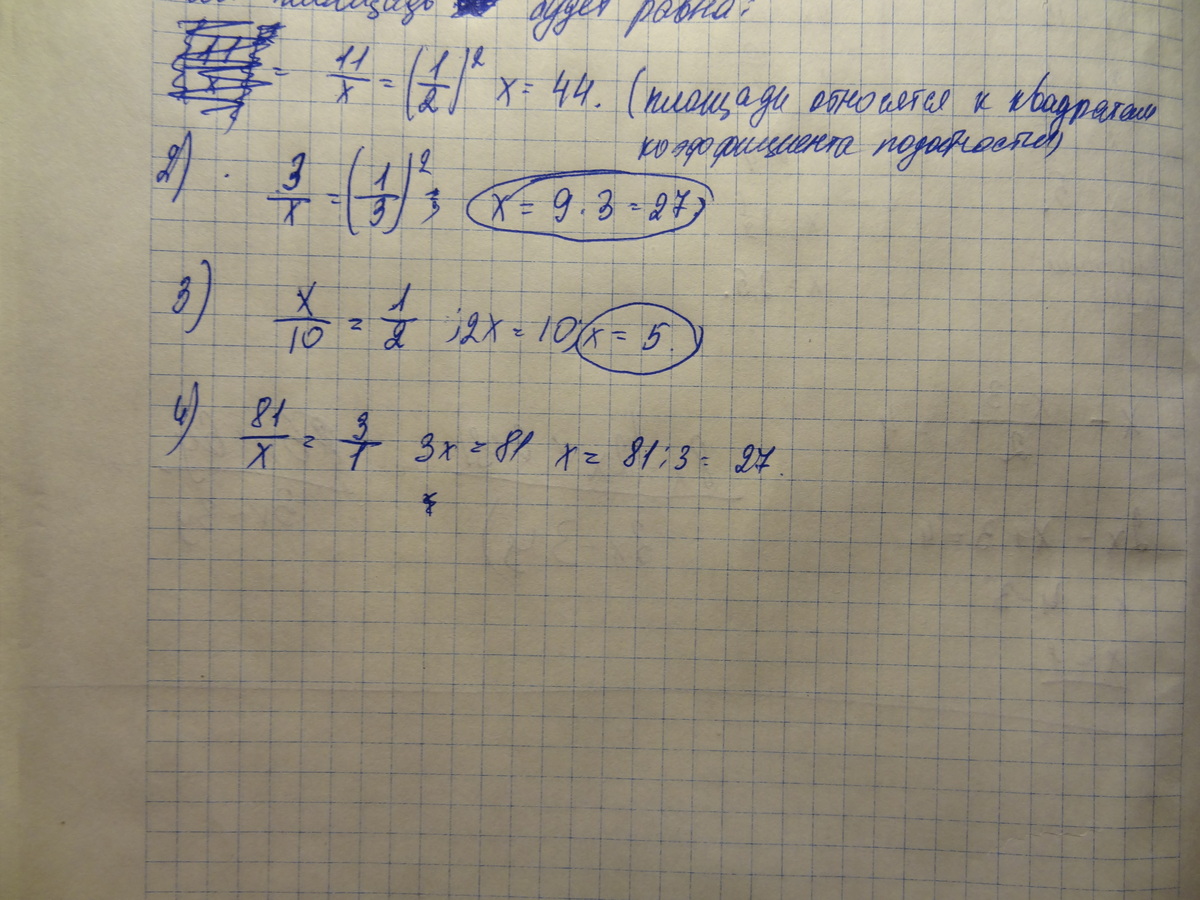 площадь будет равна:
= 11/x = (1/2)² x = 44. (площади относятся к квадратам
коэффициента подобности)
2) . 3/x = (1/3)²; x = 9 · 3 = 27
3) x/10 = 1/2 ; 2x = 10; x = 5.
4) 81/x = 3/1 3x = 81 x = 81 : 3 = 27.